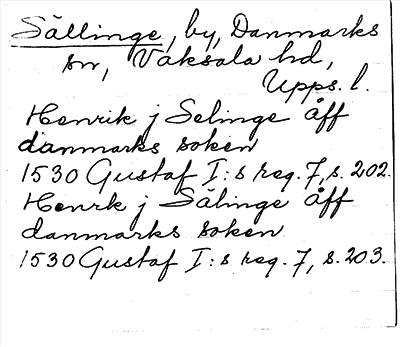 Sällinge, by, Danmarks
sn, Vaksala hd,
Upps. l.
Henrik j Selinge åff
danmarks soken
1530 Gustaf I:s reg. 7, s. 202.
Henrk j Sälinge åff
danmarks soken
1530 Gustaf I:s reg. 7, s. 203.